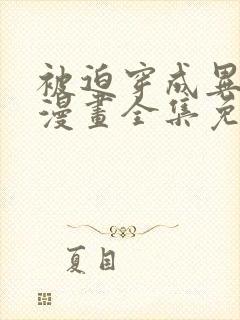 被迫穿成異
漫畫全集免
夏目